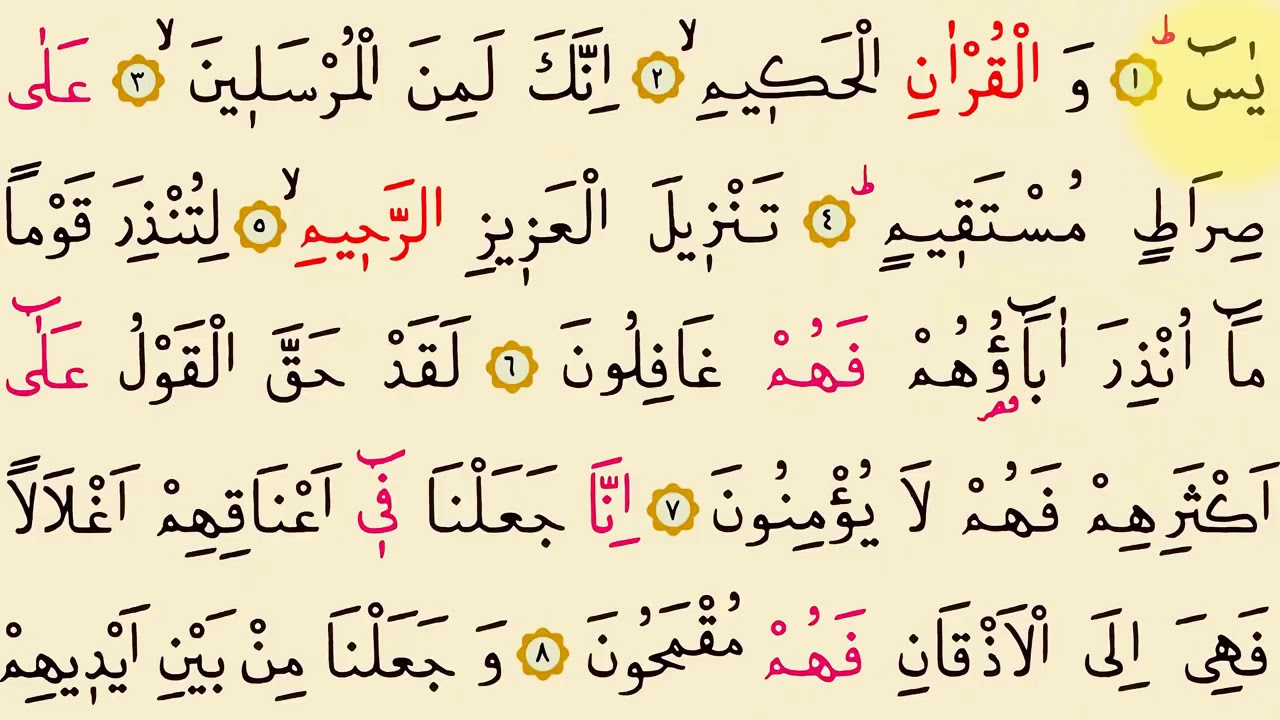 يٰسٓ ۚ ﴿١﴾ وَ الْقُرْاٰنِ الْحَك۪يمِۙ ﴿٢﴾ اِنَّكَ لَمِنَ الْمُرْسَل۪ينَۙ ﴿٣﴾ عَلٰى
صِرَاطٍ مُسْتَق۪يمٍۜ ﴿٤﴾ تَنْز۪يلَ الْعَز۪يزِ الرَّح۪يمِۙ ﴿٥﴾ لِتُنْذِرَ قَوْماً
مَٓا اُنْذِرَ اٰبَٓاؤُ۬هُمْ فَهُمْ غَافِلُونَ ﴿٦﴾ لَقَدْ حَقَّ الْقَوْلُ عَلٰٓى
اَكْثَرِهِمْ فَهُمْ لَا يُؤْمِنُونَ ﴿٧﴾ اِنَّا جَعَلْنَا ف۪ٓي اَعْنَاقِهِمْ اَغْلَالاً
فَهِيَ اِلَى الْاَذْقَانِ فَهُمْ مُقْمَحُونَ ﴿٨﴾ وَ جَعَلْنَا مِنْ بَيْنِ اَيْد۪يهِمْ